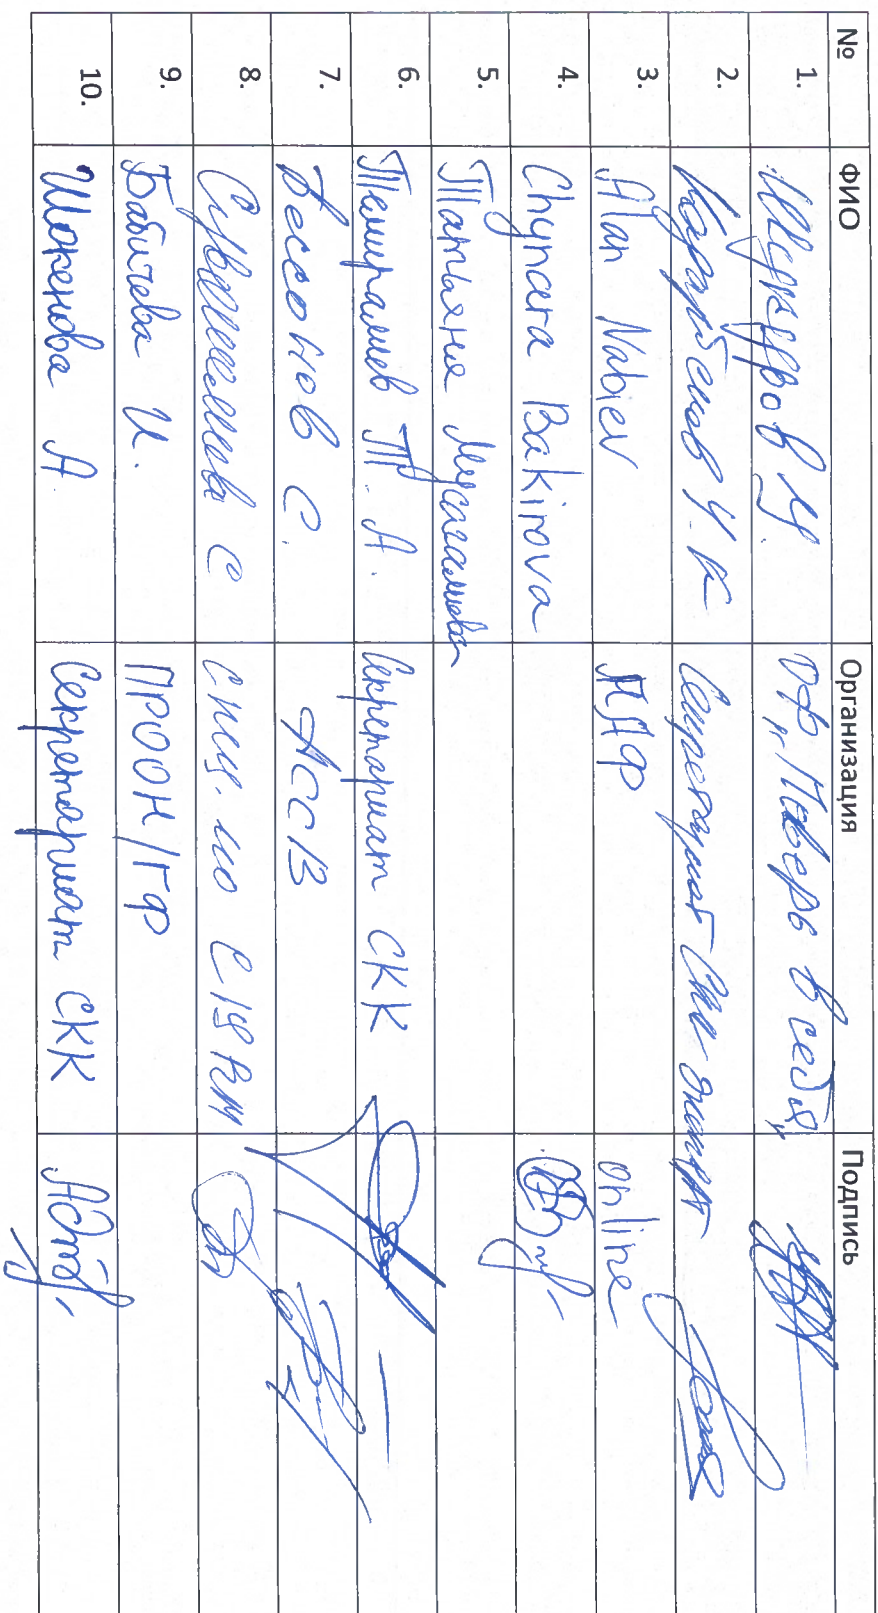 № ФИО Организация Подпись
1. Шукуров М. ОФ "Поверь в себя"
2. Карыбеков У. К Секретариат
3. Alan Nabiev ПДФ online
4. Chynara Bakirova
5. Татьяна Мусагалиева
6. Темиралиев Т. А. Секретариат СКК
7. Бессонов С. АСС
8. С спец. по
9. Бабичева И. ПРООН/ГФ
10. Шокенова А Секретариат СКК